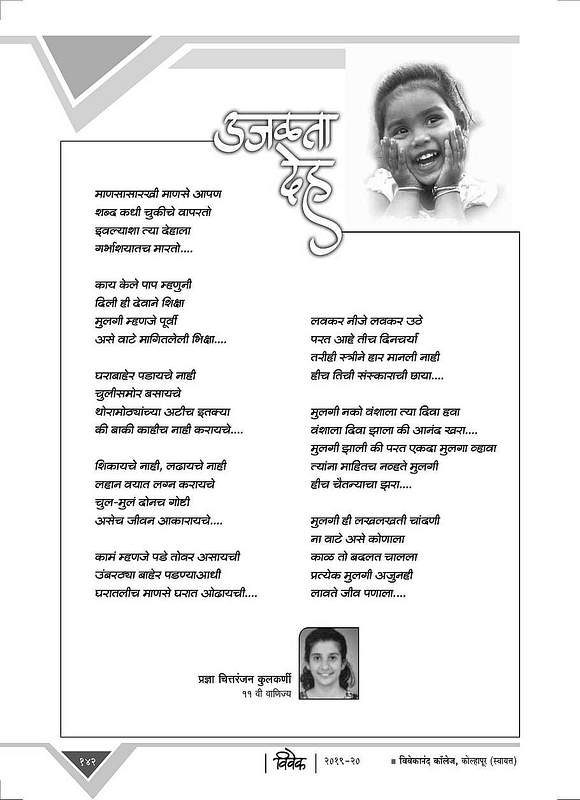 उजळता
देह
माणसासारखी माणसे आपण
शब्द कधी चुकीचे वापरतो
इवल्याशा त्या देहाला
गर्भाशयातच मारतो....
काय केले पाप म्हणुनी
दिली ही देवाने शिक्षा
मुलगी म्हणजे पूर्वी
असे वाटे मागितलेली भिक्षा....
घराबाहेर पडायचे नाही
चुलीसमोर बसायचे
थोरामोठ्यांच्या अटीच इतक्या
की बाकी काहीच नाही करायचे....
शिकायचे नाही, लढायचे नाही
लहान वयात लग्न करायचे
चुल-मुलं दोनच गोष्टी
असेच जीवन आकारायचे....
कामं म्हणजे पडे तोवर असायची
उंबरठ्या बाहेर पडण्याआधी
घरातलीच माणसे घरात ओढायची....
लवकर नीजे लवकर उठे
परत आहे तीच दिनचर्या
तरीही स्त्रीने हार मानली नाही
हीच तिची संस्काराची छाया....
मुलगी नको वंशाला त्या दिवा हवा
वंशाला दिवा झाला की आनंद खरा....
मुलगी झाली की परत एकदा मुलगा व्हावा
त्यांना माहितच नव्हते मुलगी
हीच चैतन्याचा झरा....
मुलगी ही लखलखती चांदणी
ना वाटे असे कोणाला
काळ तो बदलत चालला
प्रत्येक मुलगी अजुनही
लावते जीव पणाला....
प्रज्ञा चित्तरंजन कुलकर्णी
११ वी वाणिज्य
१४२
विवेक
२०१९-२०
■ विवेकानंद कॉलेज, कोल्हापूर (स्वायत्त)